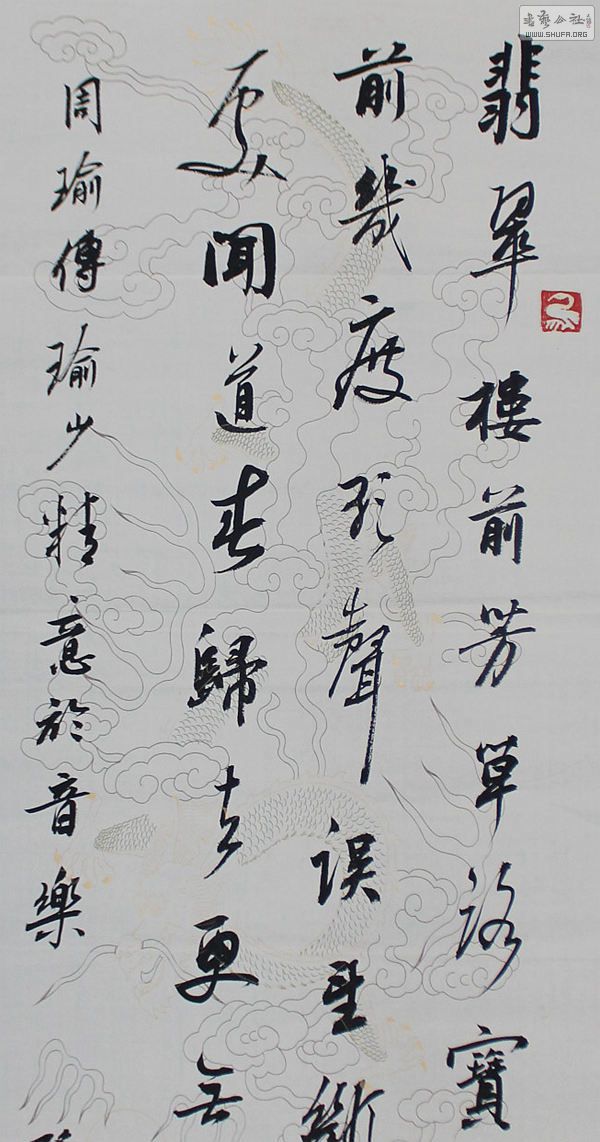 翡翠樓前芳草路寶
前幾度歌聲誤望斷
處聞道春歸去更無
周瑜傳瑜少精意於音樂
书艺公社
WWW.SHUFA.ORG